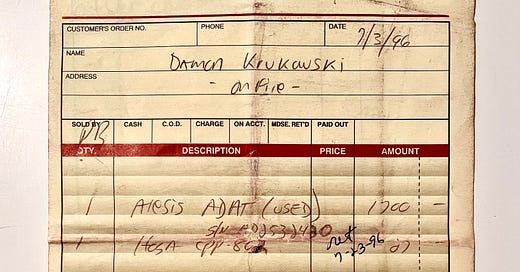 CUSTOMER'S ORDER NO. PHONE DATE 7/3/96
NAME Damon Krukowski
ADDRESS - on File -
SOLD BY CASH C.O.D. CHARGE ON ACCT. MDSE. RET'D PAID OUT
QTY. DESCRIPTION PRICE AMOUNT
1 Alesis ADAT (USED) 1700 -
s/n
1 Hosa CPP-802
7-23-96